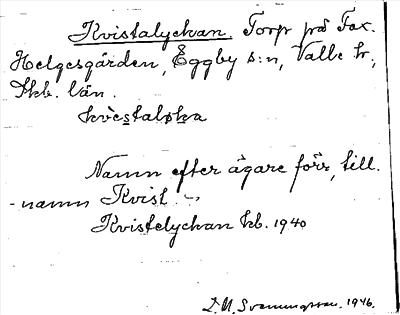 Kvistalyckan. Torp på Fax.
Helgesgården, Eggby s:n, Valle h.,
Skb. län.
kvèstaløka
Namn efter ägare förr, till.
namn Kvist.
Kvistelyckan kb. 1940
D.U. Svenningsson. 1946.